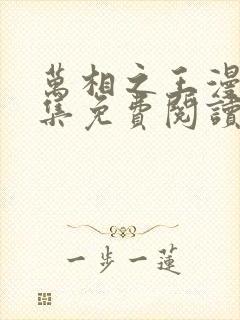 萬相之王漫
集免費閱讀
一步一蓮